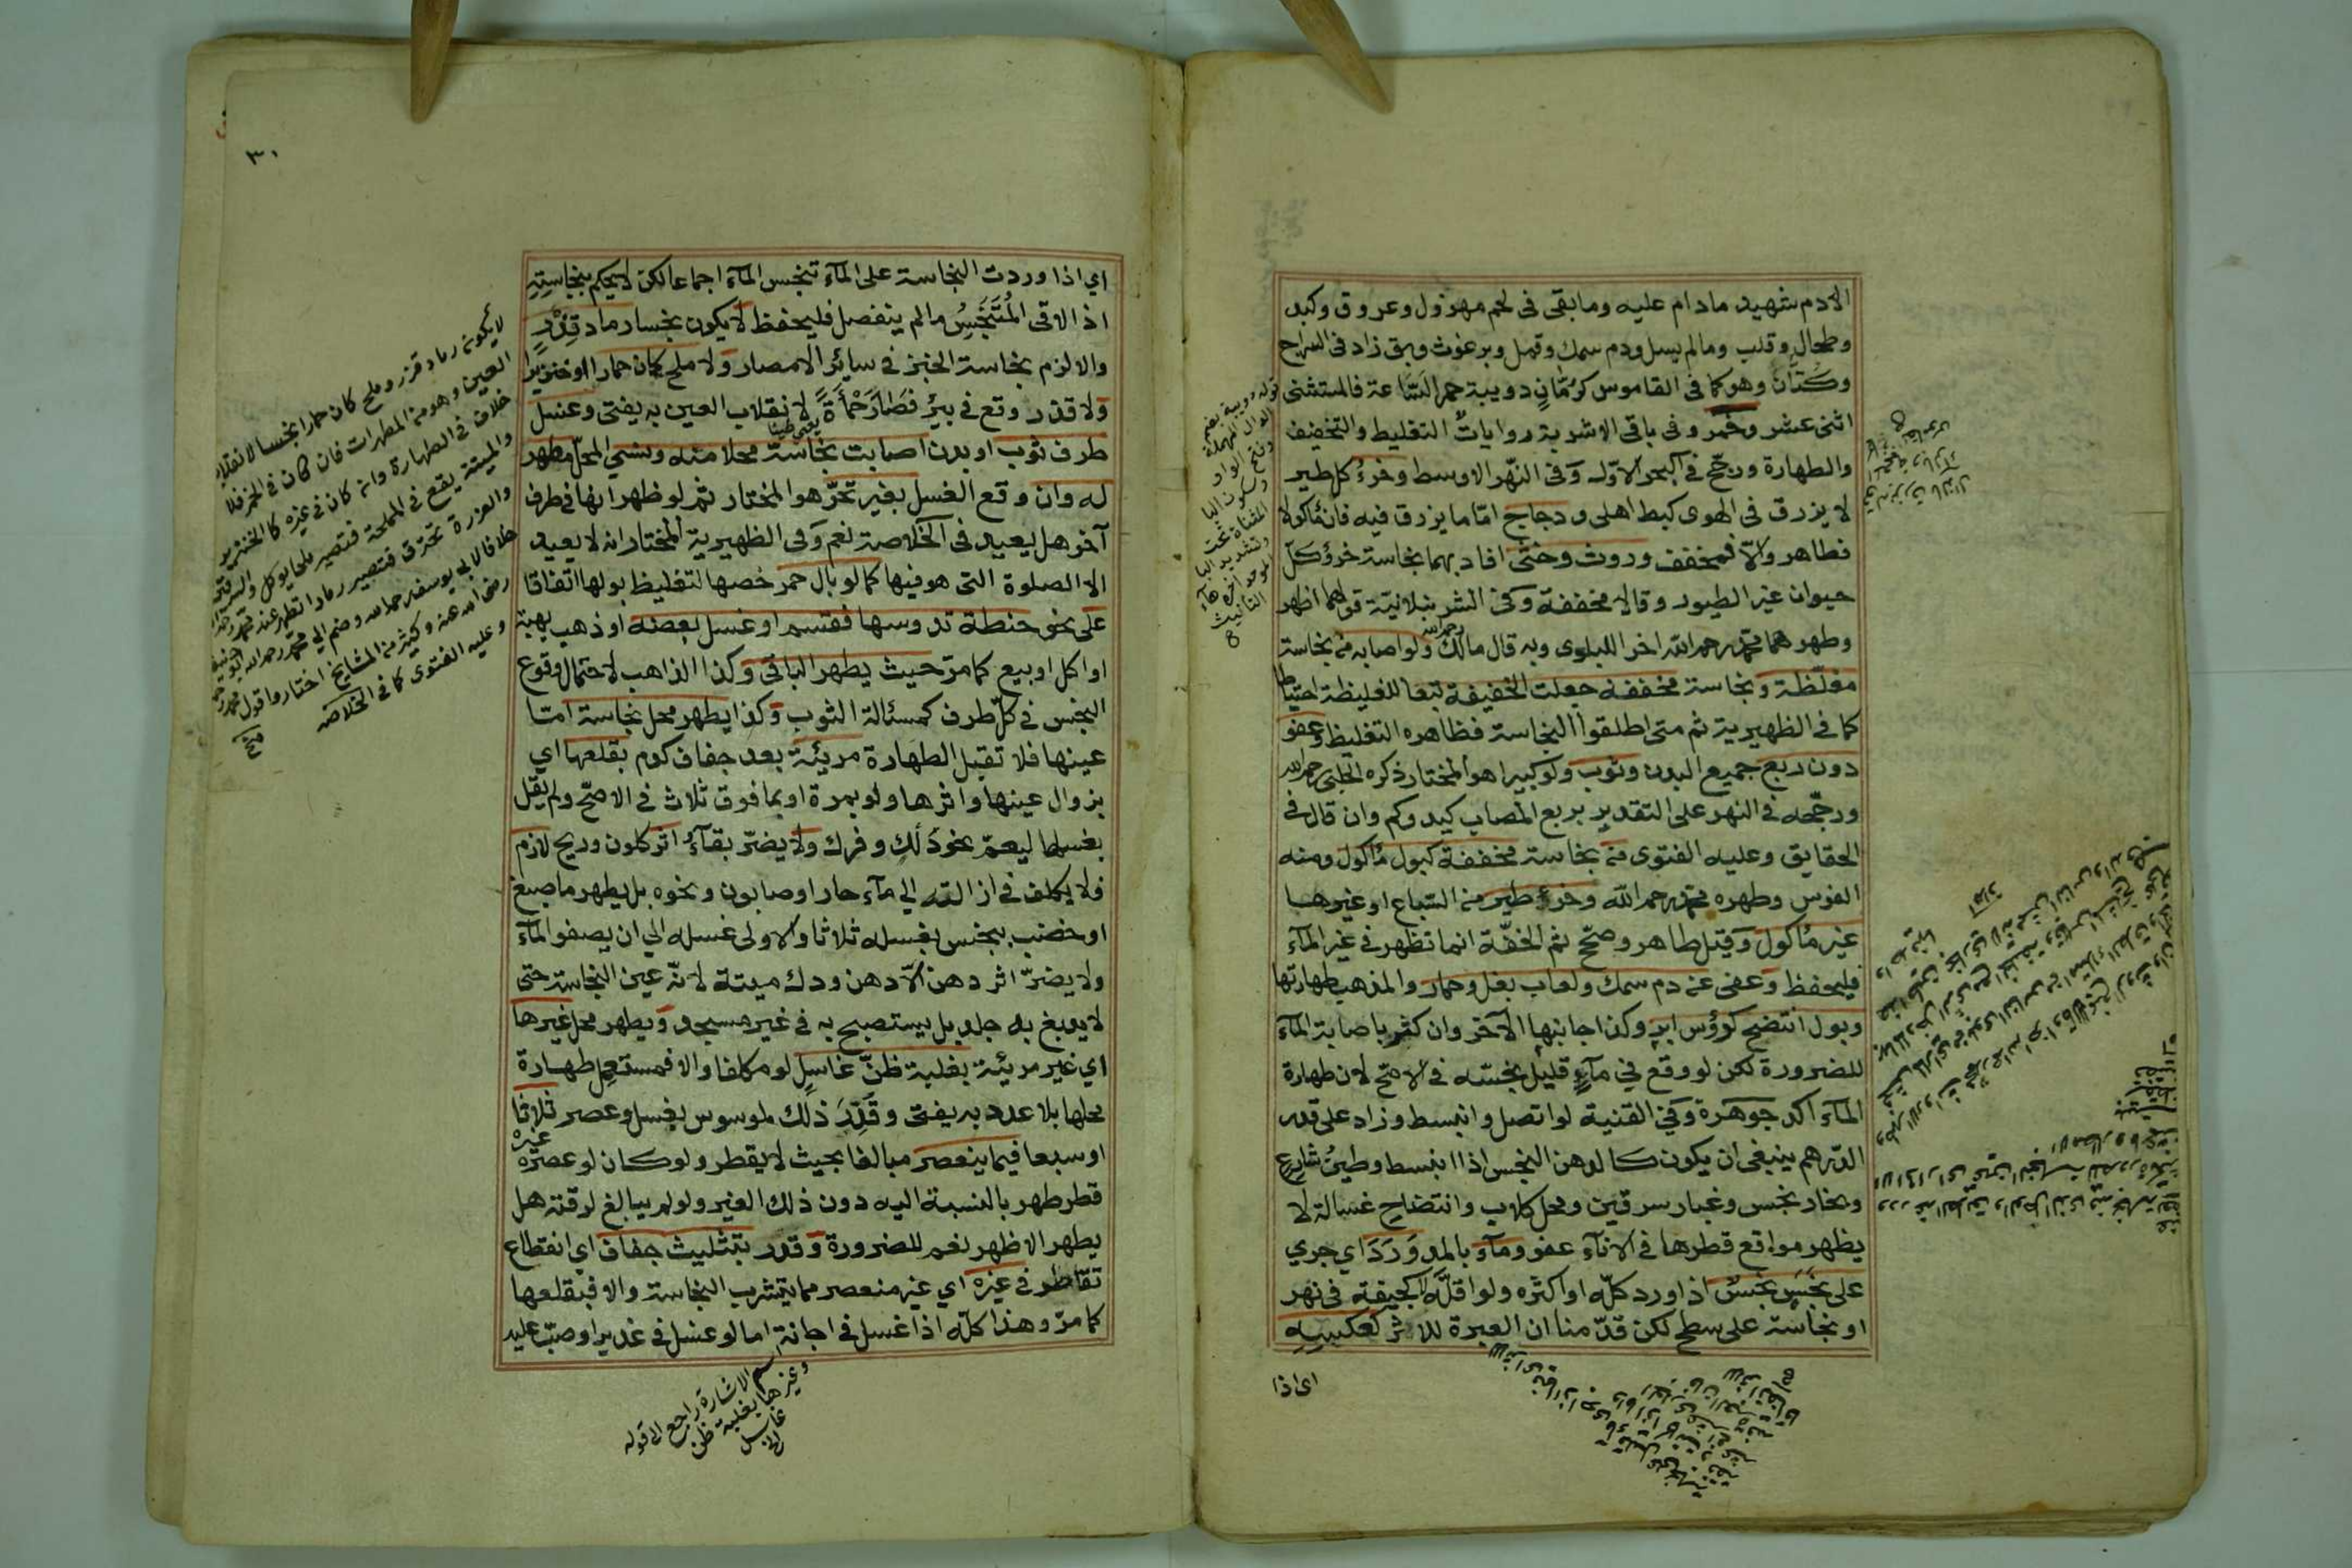 الا دم شهيد ما دام عليه وما بقى فى لحم مهزول وعروق وكبد
وطحال وقلب وما لم يسل ودم سمك وقمل وبرغوث وبق زاد فى السراج
وكتان وهو كما فى القاموس كرمان دويبة حمرا لساعة فالمستثنى
اثنى عشر وخمر وفى باقى الاشربة روايات التغليظ والتخفيف
والطهارة ورجح فى البحر الاول وفى النهر الاوسط وخرء كل طير
لا يزرق فى الهوى كبط اهلى ودجاج اما ما يزرق فيه فان مأكولا
فطاهر والا فمخفف وروث وخثى افاد بهما نجاسة خرؤ كل
حيوان غير الطيور وقالا مخففة وفى الشرنبلالية قولهما اظهر
وطهرهما محمد رحمه الله اخرا للبلوى وبه قال مالك رحمه الله ولو اصابه من نجاسة
مغلظة ونجاسة مخففة جعلت الخفيفة تبعا للغليظة احتياطا
كما فى الظهيرية ثم متى اطلقوا النجاسة فظاهره التغليظ وعفو
دون ربع جميع البدن وثوب ولو كبيرا هو المختار ذكره الحلبى رحمه الله
ورجحه فى النهر على التقدير بربع المصاب كيد وكم وان قال فى
الحقايق وعليه الفتوى من نجاسة مخففة كبول مأكول ومنه
الفرس وطهره محمد رحمه الله وخرء طير من السباع او غيرها
غير مأكول وقيل طاهر وصح ثم الخفة انما تظهر فى غير المآء
فليحفظ وعفى عن دم سمك ولعاب بغل وحمار والمذهب طهارتها
وبول انتضح كرؤس ابر وكذا جانبها الآخر وان كثر باصابة المآء
للضرورة لكن لو وقع في مآء قليل نجسه فى الاصح لان طهارة
المآء اكد جوهرة وفى القنية لو اتصل وانبسط وزاد على قدر
الدرهم ينبغى ان يكون كالدهن النجس اذا انبسط وطين شارع
وبخار نجس وغبار سرقين ومحل كلاب وانتضاح غسالة لا
يظهر مواقع قطرها فى الانآء عفو ومآء بالمد ورد اي جري
على نجس نجس اذا ورد كله او اكثره ولو اقله لا كجيفة فى نهر
او نجاسة على سطح لكن قدمنا ان العبرة للاثر كعكسه
اى اذا
قوله دويبة بضم
الدال المهملة
وفتح الواو
وسكون اليا
المثناة تحت
وتشديد البا
الموحدة اخره هآء
التأنيث
٣٠
اي اذا وردت النجاسة على المآء تنجس المآء اجماعا لكن لا يحكم بنجاسته
اذ الاقى المتنجس ما لم ينفصل فليحفظ لا يكون نجسا رماد قذر
والا لزم نجاسة الخبز فى سائر الامصار ولا ملح كان حمارا او خنزيرا
ولا قذر وقع فى بئر فصار حمأة لا نقلاب العين به يفتى وغسل
يعنى طينا
طرف ثوب او بدن اصابت نجاسة محلا منه ونسي المحل مطهر
له وان وقع الغسل بغير تحر هو المختار ثم لو ظهر انها فى طرف
آخر هل يعيد فى الخلاصة نعم وفى الظهيرية المختار انه لا يعيد
الا الصلوة التى هو فيها كما لو بال حمر خصها لتغليظ بولها اتفاقا
على نحو حنطة تدوسها فقسم او غسل بعضه او ذهب بهبة
او اكل او بيع كما مر حيث يطهر الباقى وكذا الذاهب لاحتمال وقوع
النجس فى كل طرف كمسئالة الثوب وكذا يطهر محل نجاسة اما
عينها فلا تقبل الطهارة مرئية بعد جفاف كدم بقلعها اي
بزوال عينها واثرها ولو بمرة او بما فوق ثلاث فى الاصح ولم يقل
بغسلها ليعم نحو دلك وفرك ولا يضر بقآء اثر كلون وريح لازم
فلا يكلف فى ازالته الي مآء حار او صابون ونحوه بل يطهر ما صبغ
او خضب بنجس بغسله ثلاثا والاولى غسله الي ان يصفو المآء
ولا يضر اثر دهن الا دهن ودك ميتة لانه عين النجاسة حتى
لا يدبغ به جلد بل يستصبح به فى غير مسجد ويطهر محل غيرها
اي غير مرئية بغلبة ظن غاسل لو مكلفا والا فمستعمل طهارة
محلها بلا عدد به يفتى وقدر ذلك لموسوس بغسل وعصر ثلاثا
او سبعا فيما ينعصر مبالغا بحيث لا يقطر ولو كان لو عصره غيره
قطر طهر بالنسبة اليه دون ذلك الغير ولو لم يبالغ لرقته هل
يطهر الاظهر نعم للضرورة وقدر بتثليث جفاف اي انقطاع
تقاطر فى غيره اي غير منعصر مما يتشرب النجاسة والا فبقلعها
كما مر وهذا كله اذا غسل فى اجانة اما لو غسل فى غدير او صب عليه
لا يكون رماد قذر وملح كان حمارا نجسا لانقلاب
العين وهو من المطهرات فان كان فى الخمر فلا
خلاف فى الطهارة وان كان فى غيره كالخنزير
والميتة يقع فى المملحة فتصير ملحا يوكل والسرقين
والعذرة تحترق فتصير رمادا تطهر عند محمد
خلافا لابى يوسف رحمه الله وضم الي محمد رحمه الله ابو حنيفة
رضى الله عنه وكثير من المشايخ اختاروا قول محمد
وعليه الفتوى كما فى الخلاصه
منح
اسم الاشارة راجع الى قوله
وغيرها بغلبة ظن
غاسل